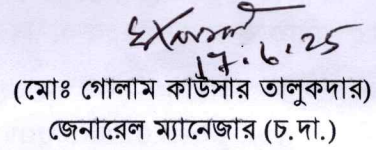 17.6.25
(মোঃ গোলাম কাউসার তালুকদার)
জেনারেল ম্যানেজার (চ.দা.)